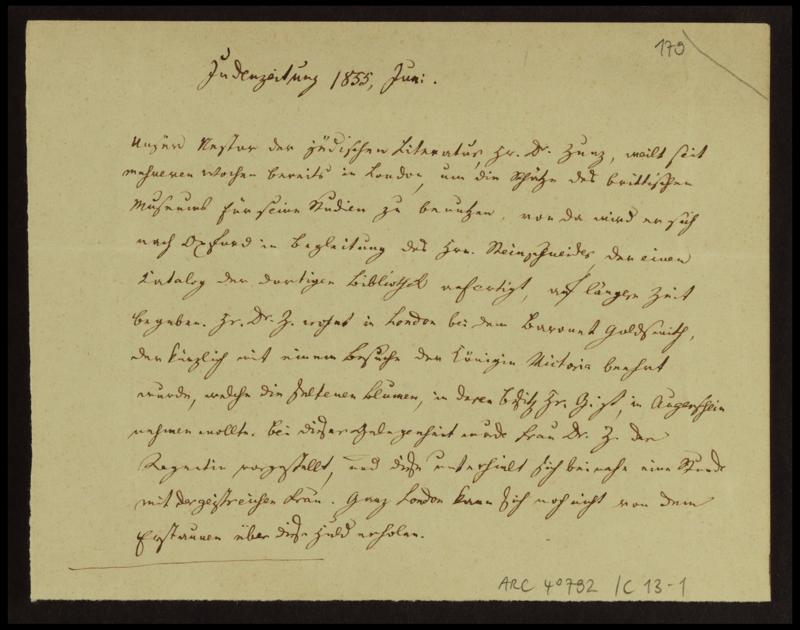 179
Judenzeitung 1855, Juni.
Unser Nestor der jüdischen Literatur, Hr. Dr. Zunz, weilt seit
mehreren Wochen bereits in London, um die Schätze des brittischen
Museums für seine Studien zu benutzen, von da wird er sich
nach Oxford in Begleitung des Hrn. Steinschneider, der einen
Katalog der dortigen Bibliothek anfertigt, auf längere Zeit
begeben. Hr. Dr. Z. wohnt in London bei dem Baronet Goldsmith,
der kürzlich mit einem Besuche der Königin Victoria beehrt
wurde, welche die seltenen Blumen, in deren Besitz Hr. G. ist, in Augenschein
nehmen wollte. Bei dieser Gelegenheit wurde Frau Dr. Z. der
Regentin vorgestellt, und diese unterhielt sich beinahe eine Stunde
mit der geistreichen Frau. Ganz London kann sich noch nicht von dem
Erstaunen über diese Huld erholen.
ARC 4°792 /C 13-1